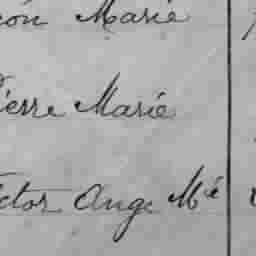 éon Marie
Pierre Marie
ictor Ange Mie